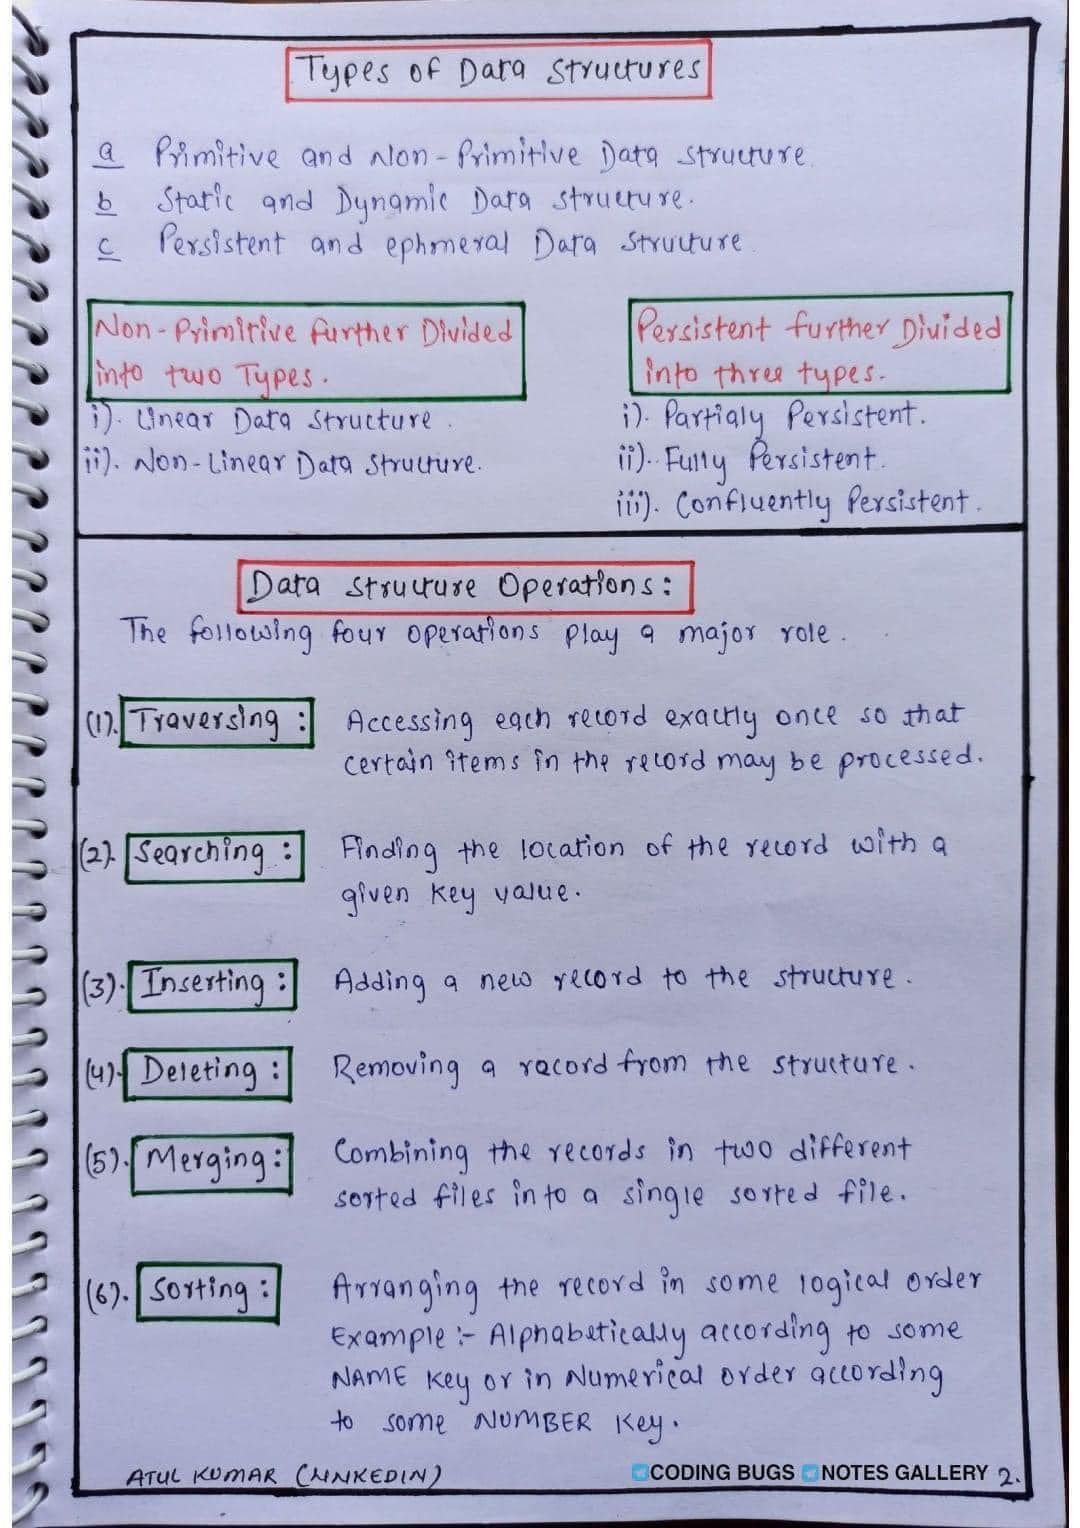 Types of Data Structures
a Primitive and Non-Primitive Data structure.
b Static and Dynamic Data structure.
c Persistent and ephmeral Data Structure.
Non-Primitive further Divided
into two Types.
i). Linear Data Structure.
ii). Non-Linear Data Structure.
Persistent further Divided
into three types.
i). Partialy Persistent.
ii). Fully Persistent.
iii). Confluently Persistent.
Data Structure Operations:
The following four operations play a major role.
(1). Traversing : Accessing each record exactly once so that
certain items in the record may be processed.
(2). Searching : Finding the location of the record with a
given key value.
(3). Inserting : Adding a new record to the structure.
(4). Deleting : Removing a racord from the structure.
(5). Merging : Combining the records in two different
sorted files into a single sorted file.
(6). Sorting : Arranging the record in some logical order
Example :- Alphabetically according to some
NAME key or in Numerical order according
to some NUMBER key.
ATUL KUMAR (LINKEDIN) CODING BUGS NOTES GALLERY 2.